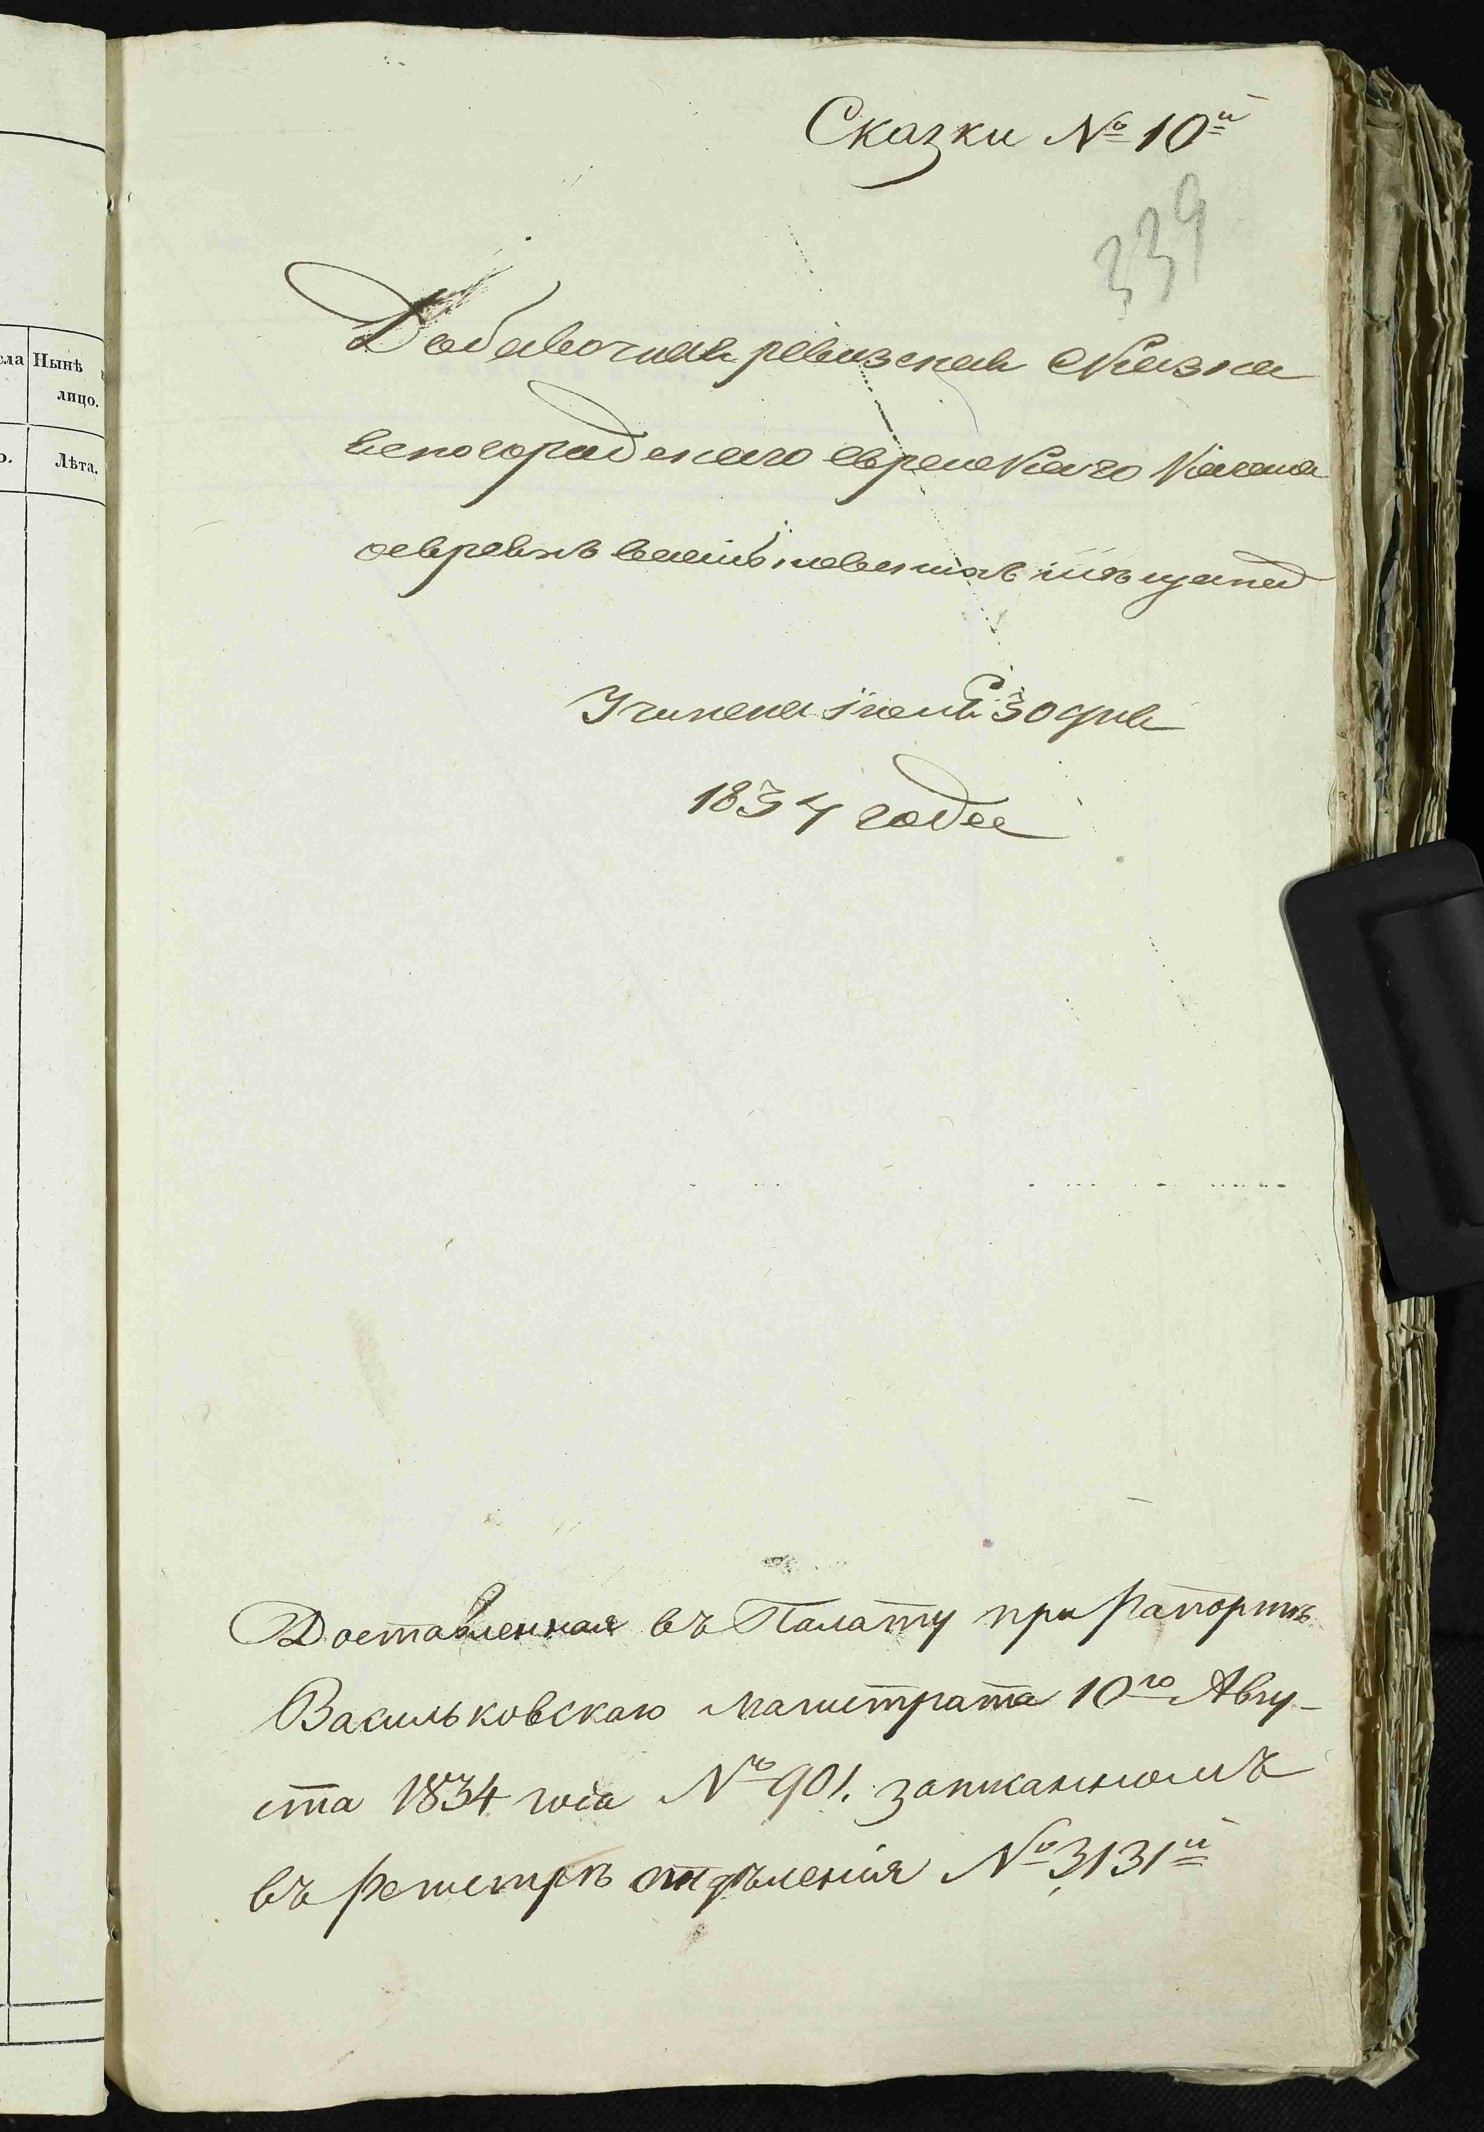 сла Нынѣ
лицо.
Лѣта.
Сказки № 10й
339
Добавочная ревизская сказка
белогородскаго еврейскаго Кагала
оевреяхъ
Учинена Іюня 30 дня
1834 года
Доставленная въ Палату при рапортѣ
Васильковскаго магистрата 10го Авгу-
ста 1834 года № 901. записанномъ
въ регистрѣ отдѣленія № 3131й